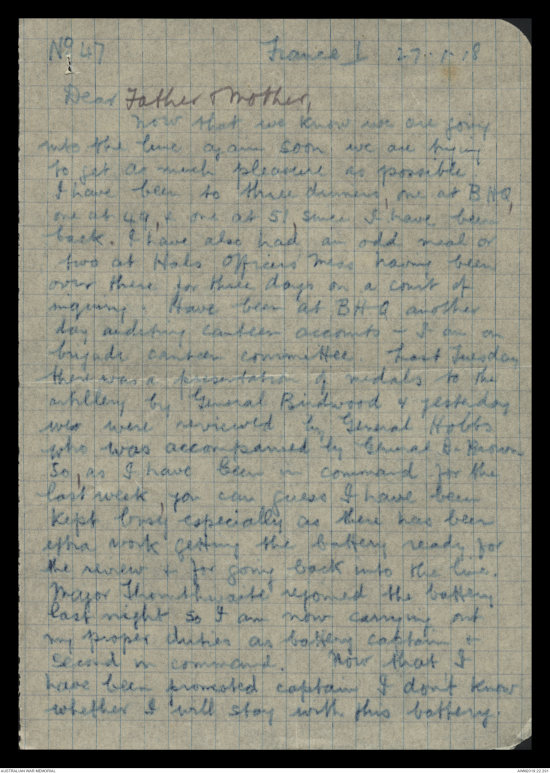 No 47 France 27.1.18
1
Dear Father & Mother,
Now that we know we are going
into the line again soon we are trying
to get as much pleasure as possible
I have been to three dinners, one at BHQ,
one at 49, & one at 51, since I have been
back. I have also had an odd meal or
two at Hdqs Officers Mess having been
over there for three days on a court of
inquiry. Have been at BHQ another
day auditing canteen accounts – I am on
brigade canteen committee. Last Tuesday
there was a presentation of medals to the
artillery by General Birdwood & yesterday
we were reviewed by General Hobbs
who was accompanied by General
So, as I have been in command for the
last week, you can guess I have been
kept busy especially as there has been
extra work getting the battery ready for
the review & for going back into the line.
Major Thornthwaite rejoined the battery
last night, so I am now carrying out
my proper duties as battery captain &
second in command. Now that I
have been promoted captain I don't know
whether I will stay with this battery.
AUSTRALIAN WAR MEMORIAL